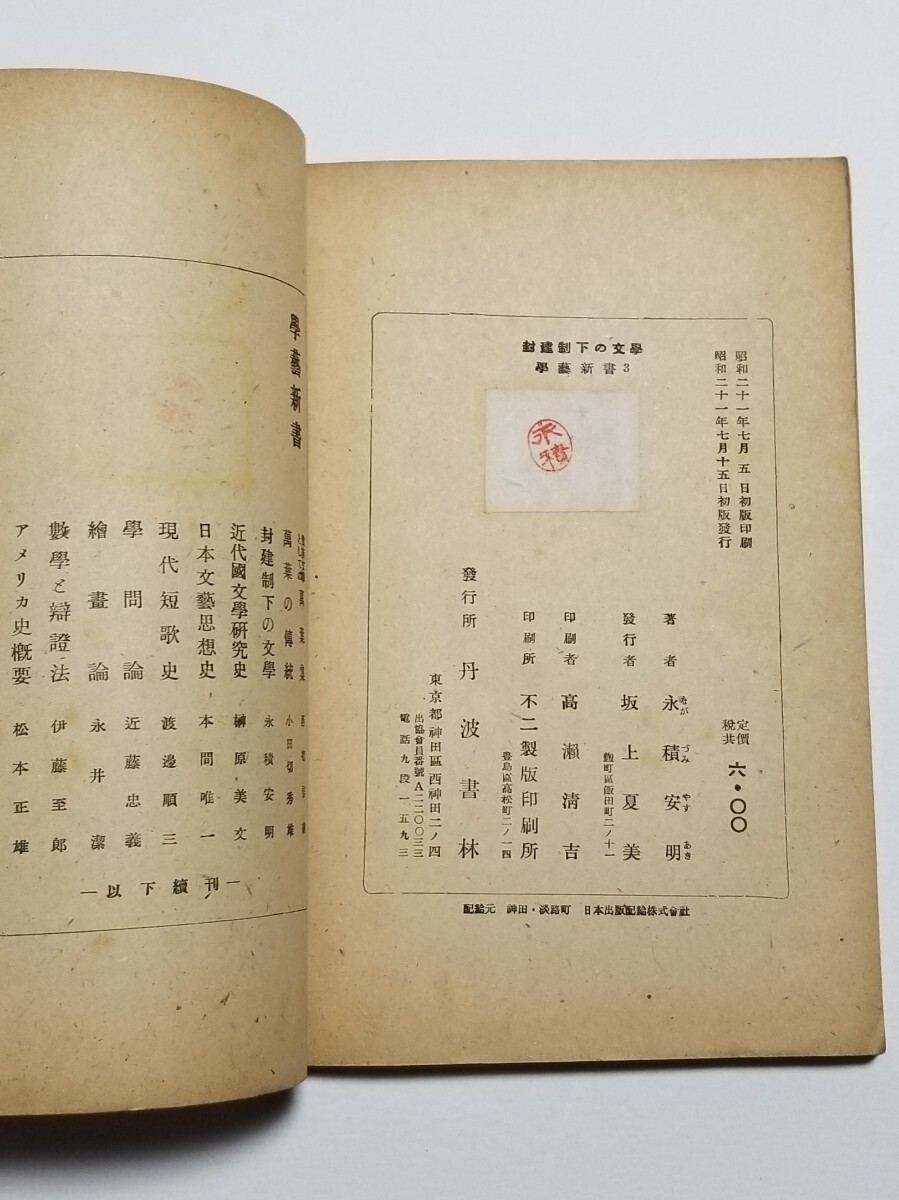 昭和二十一年七月 五 日初版印刷
昭和二十一年七月十五日初版發行
定價
税共
六・〇〇
封建制下の文學
學藝新書3
永積
著者 永積安明
ながづみやすあき
發行者 坂上夏美
麴町區飯田町二ノ十一
印刷者 高瀨淸吉
印刷所 不二製版印刷所
豊島區高松町二ノ一四
發行所 丹波書林
東京都神田區西神田二ノ四
出協會員番號A二二〇〇三三
電話九段一五九三
配給元 神田・淡路町 日本出版配給株式會社
學藝新書
萬葉集
萬葉の傳統 小田切秀雄
封建制下の文學 永積安明
近代國文學研究史 榊原美文
日本文藝思想史 本間唯一
現代短歌史 渡邊順三
學問論 近藤忠義
繪畫論 永井潔
數學と辯證法 伊藤至郎
アメリカ史概要 松本正雄
―以下續刊―